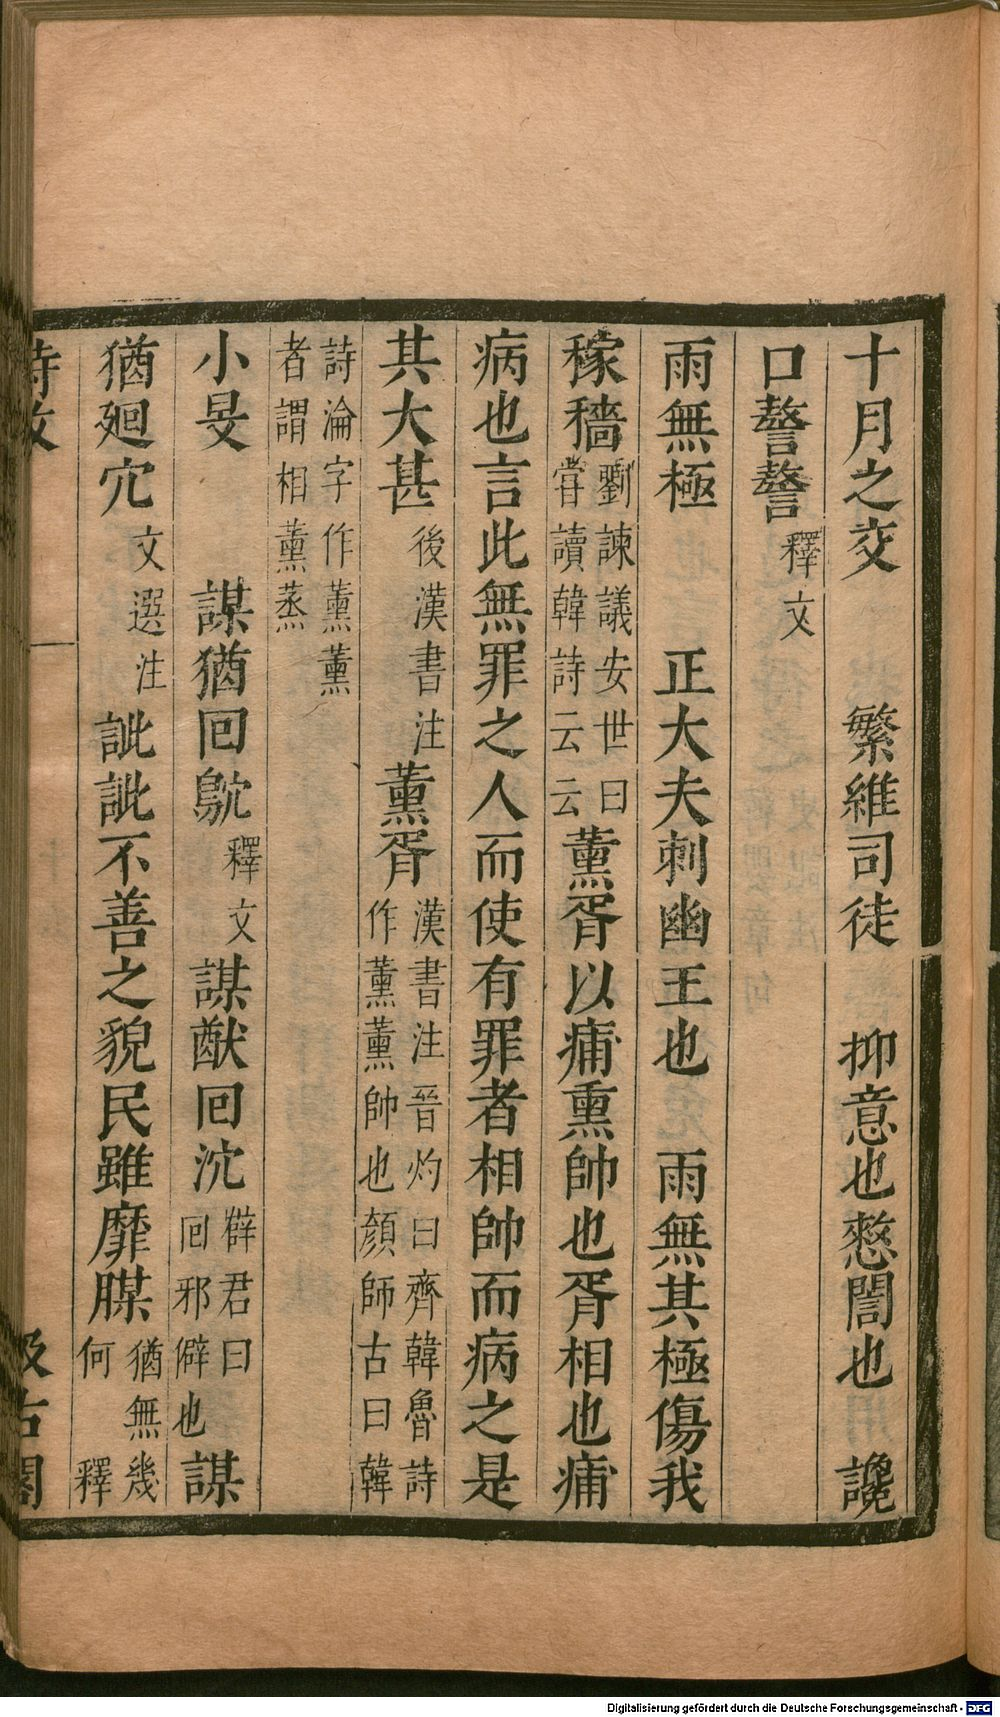 十月之交　繁維司徒　抑意也憗誾也　讒
口謷謷釋文
雨無極　正大夫刺幽王也　雨無其極傷我
稼穡劉諫議安世曰嘗讀韓詩云云薰胥以痡熏帥也胥相也痡
病也言此無罪之人而使有罪者相帥而病之是
其大甚後漢書注薰胥漢書注晉灼曰齊韓魯詩作薰薰帥也顏師古曰韓
詩淪字作薰薰者謂相薰蒸
小旻　謀猶回鴥釋文謀猷回泬薛君曰回邪僻也謀
猶廻穴文選注訿訿不善之貌民雖靡腜猶無幾何釋
詩攷
汲古閣
Digitalisierung gefördert durch die Deutsche Forschungsgemeinschaft - DFG